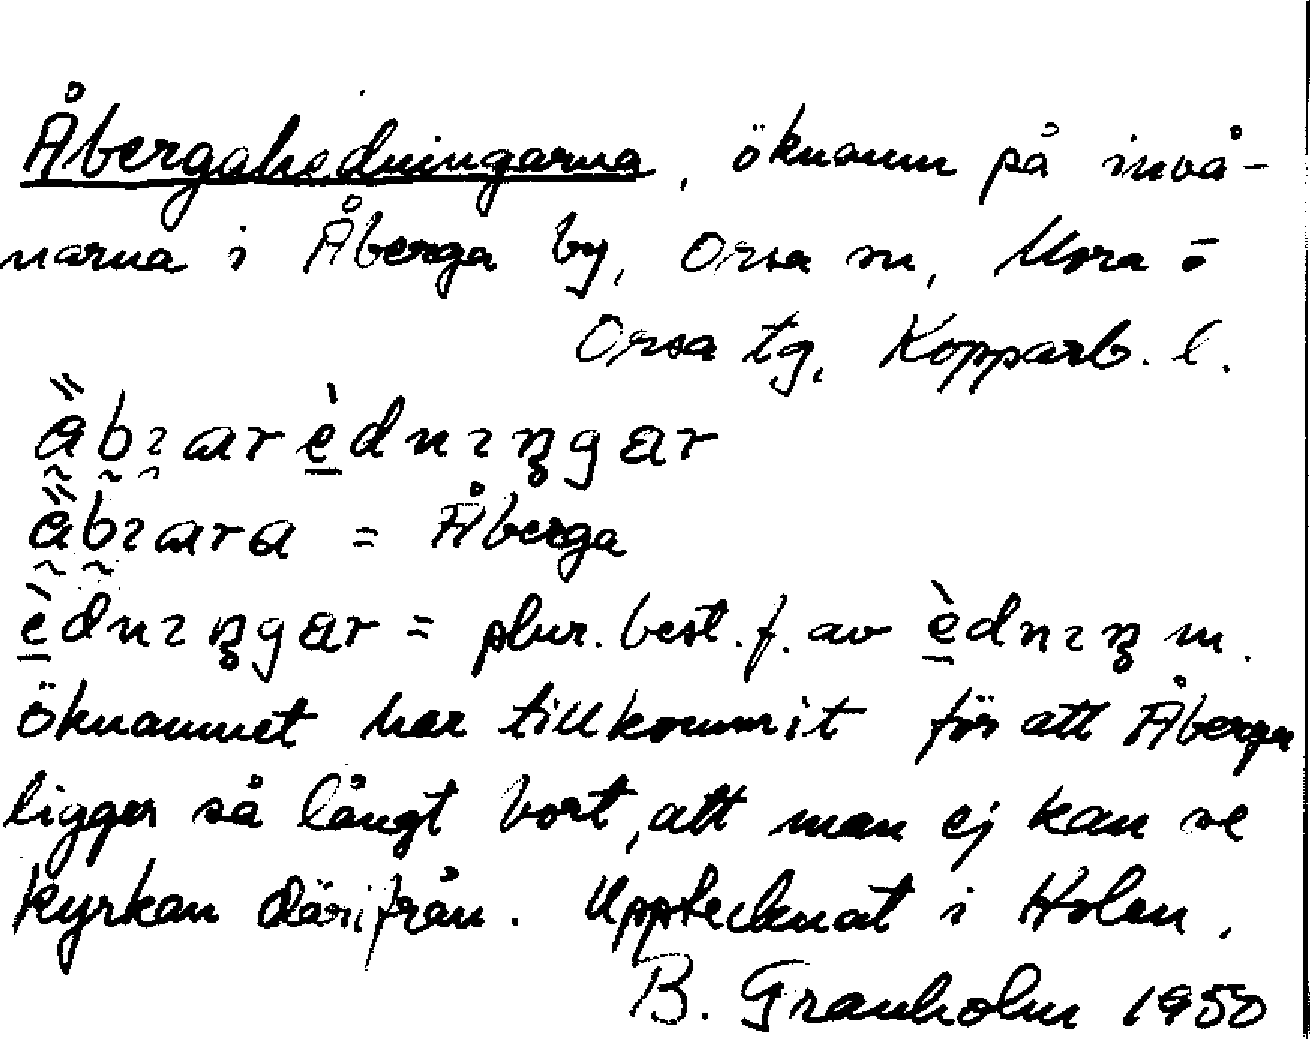 Åbergahedningarna, öknamn på invå-
narna i Åberga by, Orsa sn, Mora o
Orsa tg, Kopparb. l.
= Åberga
= plur. best. f. av m.
öknamnet har tillkommit för att Åberga
ligger så långt bort, att man ej kan se
kyrkan därifrån. Upptecknat i Holen.
B. Granholm 1950